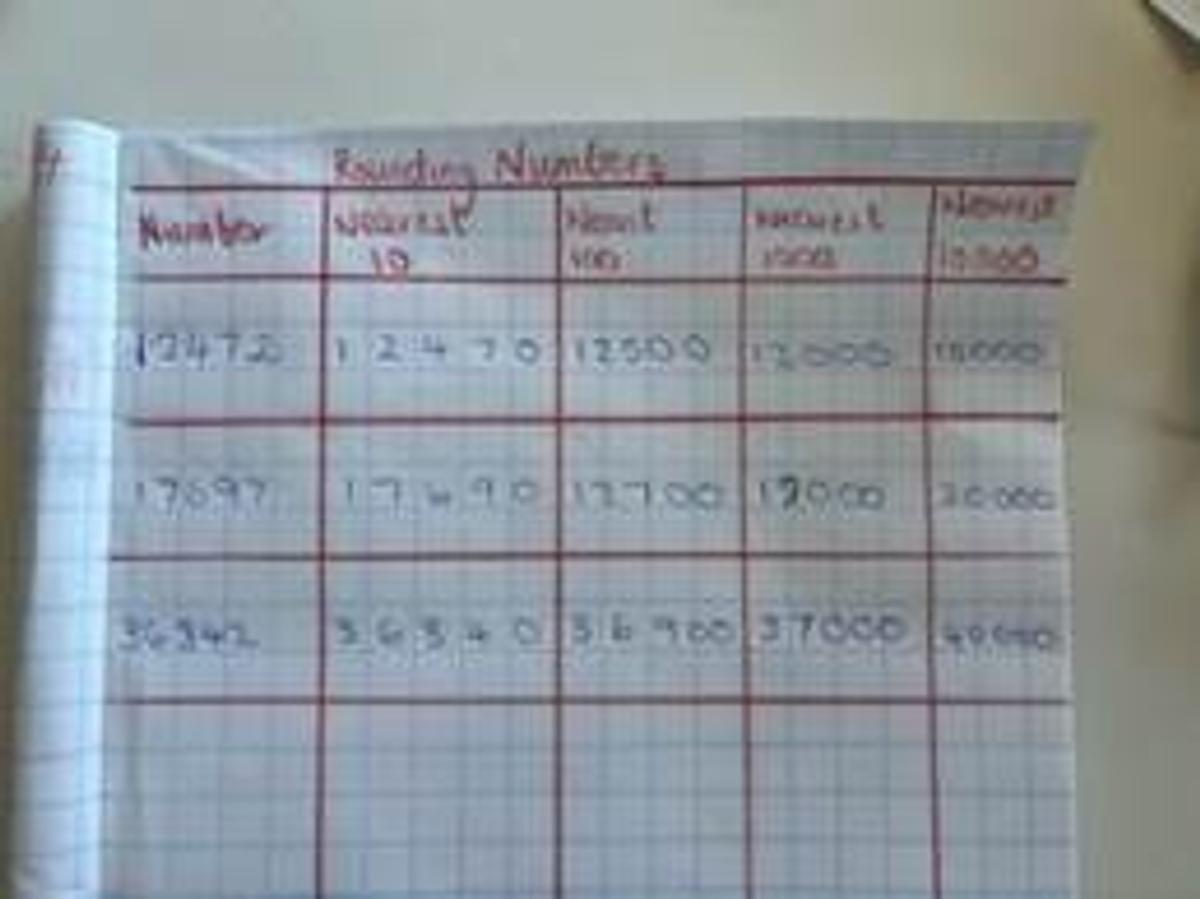 Rounding Numbers
Number Nearest 10 Nearst 100 Nearest 1000 Nearest 10000
12472 12470 12500 12000 10000
17697 17690 17700 18000 20000
36342 36340 36900 37000 40000